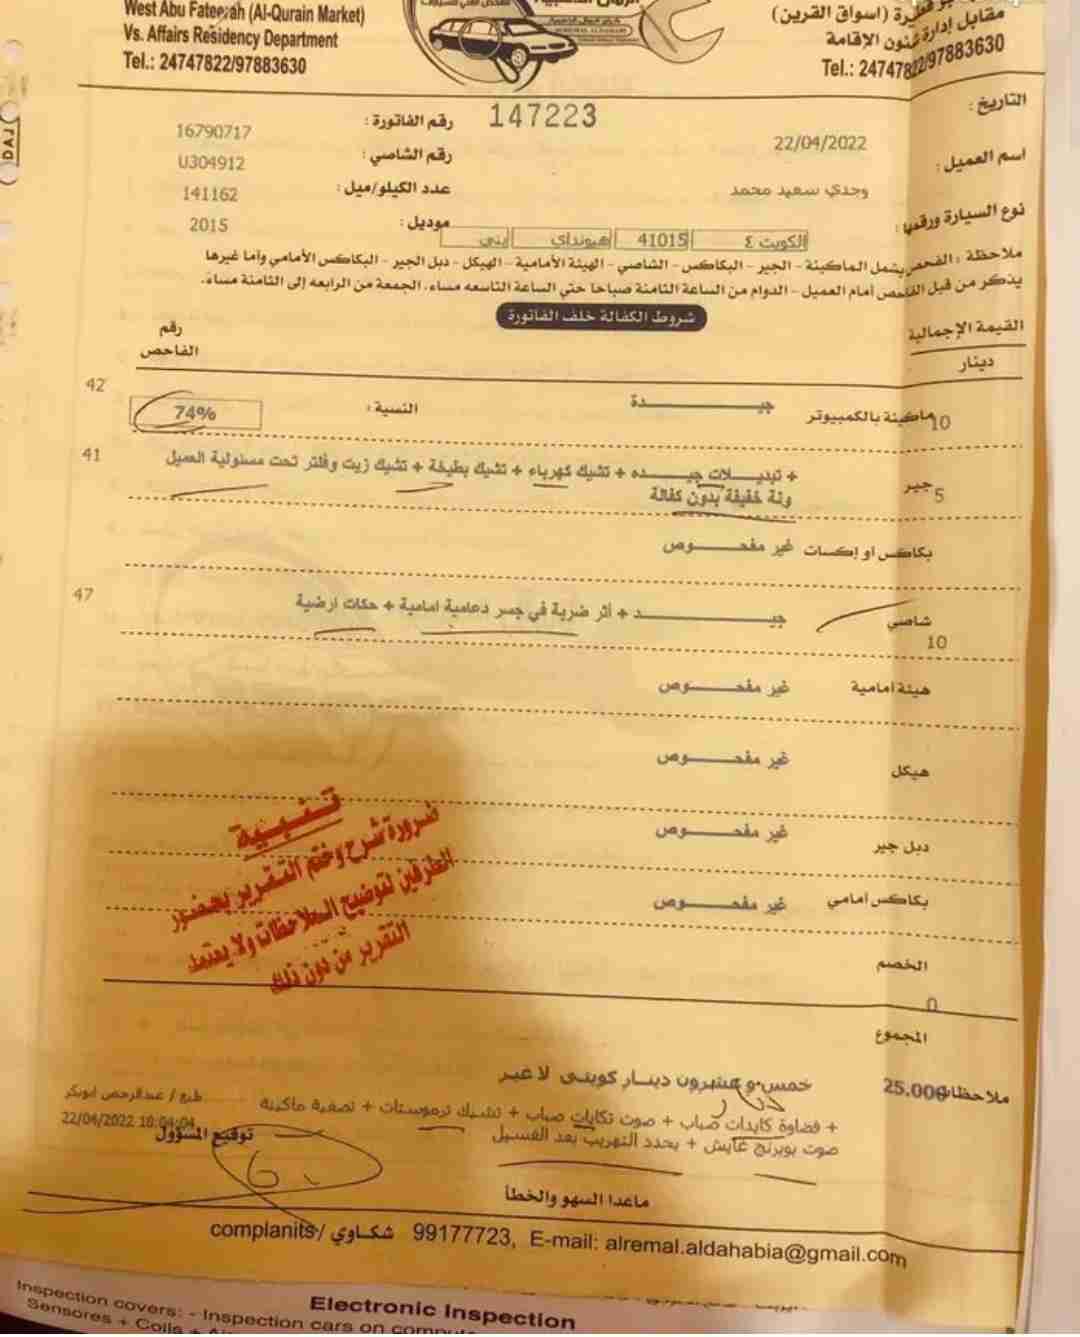 West Abu Fateerah (Al-Qurain Market)
Vs. Affairs Residency Department
Tel.: 24747822/97883630
(اسواق القرين)
مقابل إدارة شئون الإقامة
Tel.: 24747822/97883630
DAJ
147223
التاريخ :
22/04/2022
رقم الفاتورة :
16790717
اسم العميل :
وجدي سعيد محمد
رقم الشاصي :
U304912
عدد الكيلو/ميل :
141162
نوع السيارة ورقمها :
الكويت ٤
41015
هيونداي
بني
موديل :
2015
ملاحظة : الفحص يشمل الماكينة - الجير - البكاكس - الشاصي - الهيئة الأمامية - الهيكل - دبل الجير - البكاكس الأمامي وأما غيرها
يذكر من قبل الفاحص أمام العميل - الدوام من الساعة الثامنة صباحا حتى الساعة التاسعه مساء. الجمعة من الرابعه إلى الثامنة مساء.
شروط الكفالة خلف الفاتورة
القيمة الإجمالية
دينار
رقم
الفاحص
42
ماكينة بالكمبيوتر
10
جيـــــدة
النسبة :
74%
41
جير
5
+ تبديـــلات جيـــده + تشيك كهرباء + تشيك بطيخة + تشيك زيت وفلتر تحت مسئولية العميل
ونة خفيفة بدون كفالة
بكاكس او إكسات
غير مفحـــــوص
47
شاصي
10
جيـــــد + أثر ضربة في جسر دعامية امامية + حكات ارضية
هيئة امامية
غير مفحـــــوص
هيكل
غير مفحـــــوص
دبل جير
غير مفحـــــوص
بكاكس أمامي
غير مفحـــــوص
تنبيه
ضرورة شرح وختم التقرير بحضور
الطرفين لتوضيح الملاحظات ولا يعتمد
التقرير من دون ذلك
الخصم
0
المجموع
25.000
خمس و عشرون دينار كويتى لا غير
ملاحظات
+ قضاوة كايدات صباب + صوت تكايات صباب + تشيك ترموستات + تصفية ماكينة
صوت بويرنج عايش + يحدد التهريب بعد الغسيل
طبع / عبدالرحمن ابوبكر
22/04/2022 18:04:04
توقيع المسؤول
ماعدا السهو والخطأ
complanits/ شكاوي 99177723, E-mail: alremal.aldahabia@gmail.com
Electronic Inspection
Inspection covers: - Inspection cars on
Sensores + Coils +